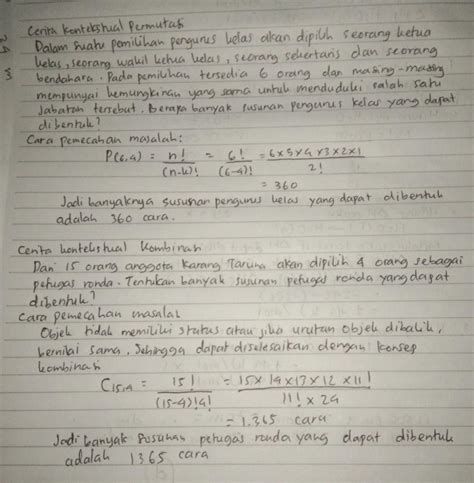 Cerita kontekstual Permutasi
Dalam suatu pemilihan pengurus kelas akan dipilih seorang ketua
kelas, seorang wakil ketua kelas, seorang sekertaris dan seorang
bendahara. Pada pemilihan tersedia 6 orang dan masing-masing
mempunyai kemungkinan yang sama untuk menduduki salah satu
jabatan tersebut. Berapa banyak susunan pengurus kelas yang dapat
dibentuk?
Cara pemecahan masalah:
P(6,4) = n!/(n-k)! = 6!/(6-4)! = 6x5x4x3x2x1/2!
= 360
Jadi banyaknya susunan pengurus kelas yang dapat dibentuk
adalah 360 cara.
Cerita kontekstual Kombinasi
Dari 15 orang anggota karang Taruna akan dipilih 4 orang sebagai
petugas ronda. Tentukan banyak susunan petugas ronda yang dapat
dibentuk?
Cara pemecahan masalah
Objek tidak memiliki status atau jika urutan objek dibalik,
bernilai sama. Sehingga dapat diselesaikan dengan konsep
kombinasi
C15,4 = 15!/(15-4)!4! = 15x14x13x12x11!/11!x24
= 1.365 cara
Jadi banyak susunan petugas ronda yang dapat dibentuk
adalah 1365 cara